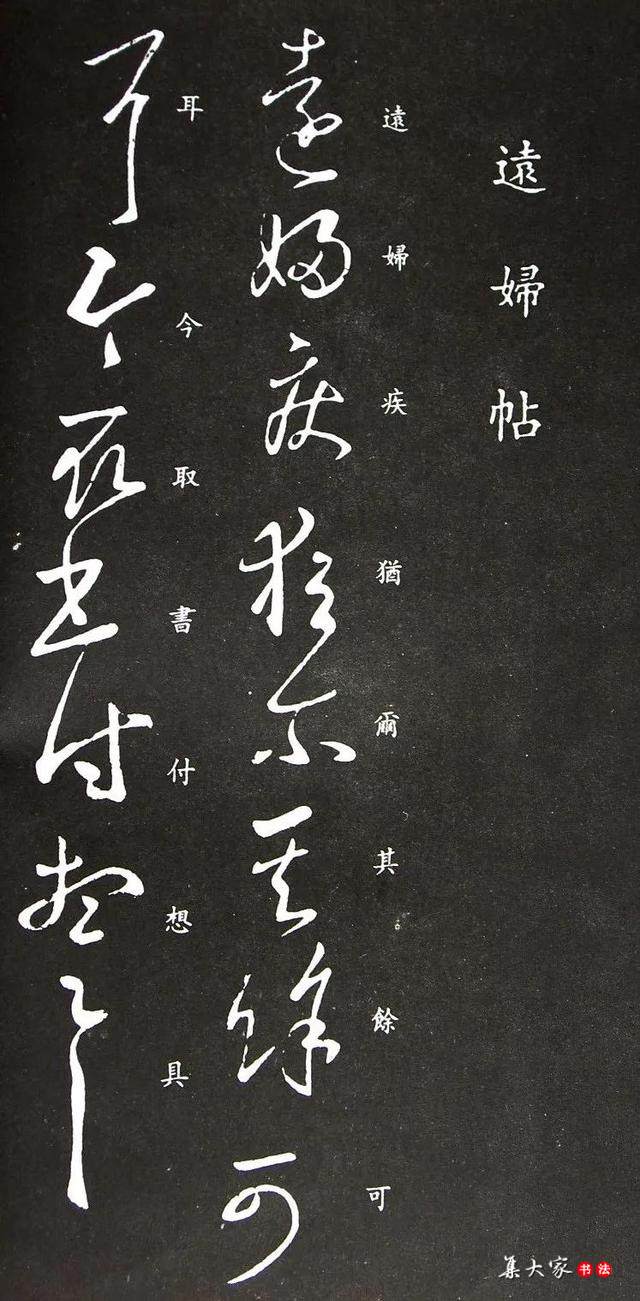 遠婦帖
遠婦疾猶爾其餘可
耳今取書付想具
集大家书法